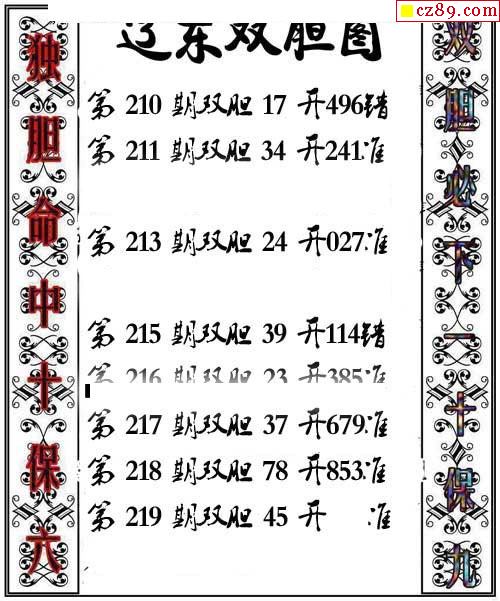 cz89.com
辽东双胆图
独胆命中十保六
第 210 期双胆 17 开496错
第 211 期双胆 34 开241准
第 213 期双胆 24 开027准
第 215 期双胆 39 开114错
第 216 期双胆 23 开385准
第 217 期双胆 37 开679准
第 218 期双胆 78 开853准
第 219 期双胆 45 开 准
双胆必下一十保九